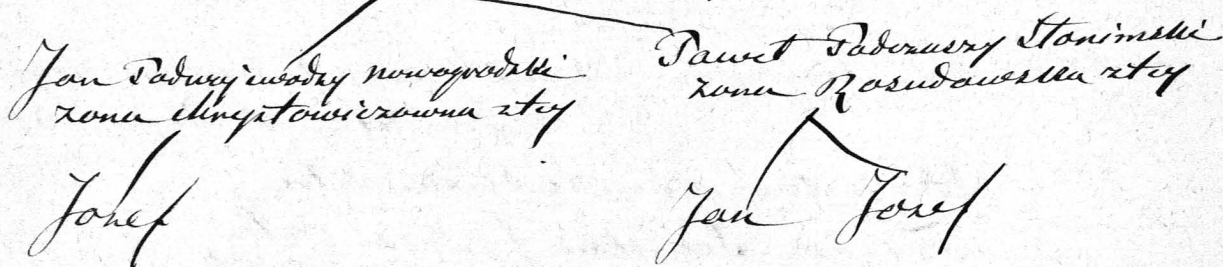 Jan Podwojewodzy nowogrodzki
żona Chreptowiczowna z tey
Paweł Podczaszy Słonimski
żona Rosudowska z tey
Jozef
Jan Jozef